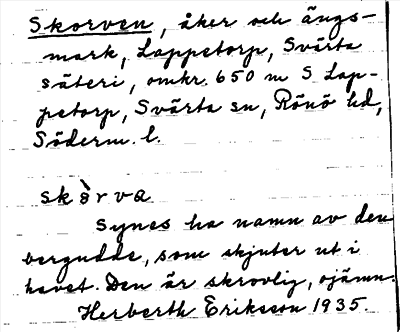 Skorven, åker och ängs-
mark, Lappetorp, Svärta
säteri, omkr. 650 m S Lap-
petorp, Svärta sn, Rönö hd,
Söderm. l.
skòrva
Synes ha namn av den
bergudde, som skjuter ut i
havet. Den är skrovlig, ojämn.
Herberth Eriksson 1935